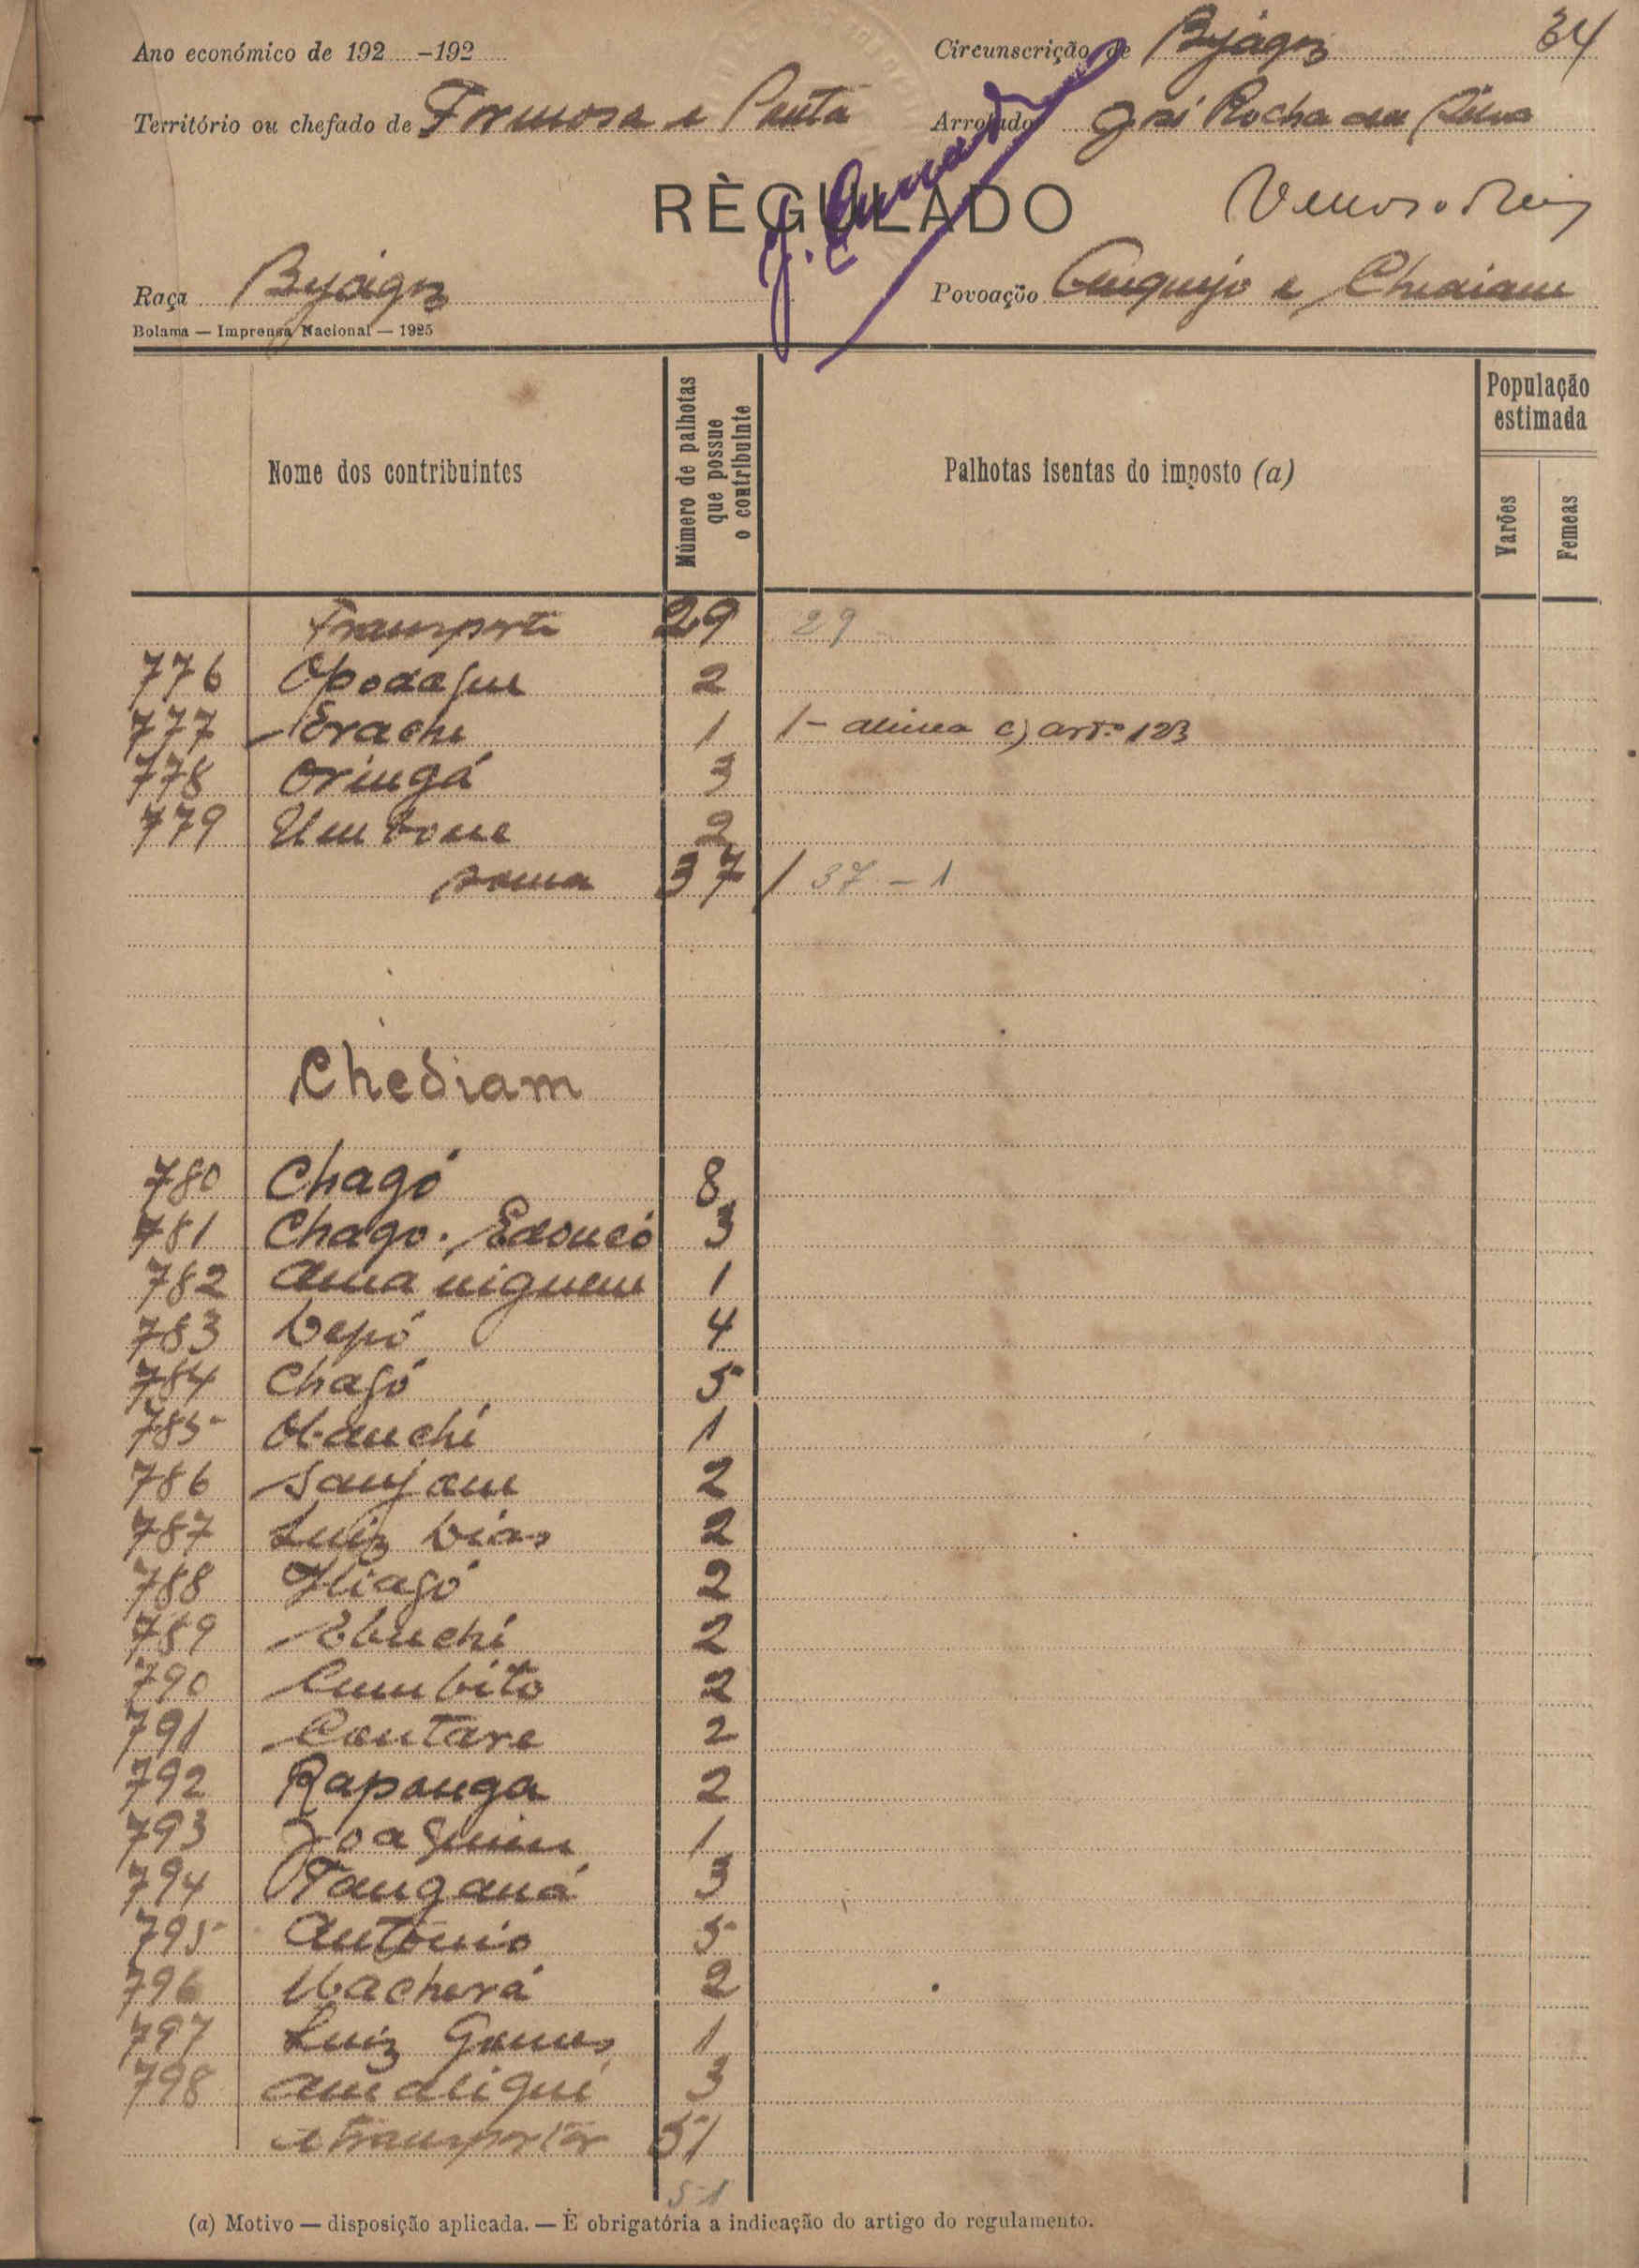 Ano económico de 192 -192
Circunscrição de Byágoz 34
Território ou chefado de Formosa e Ponta
Arrolador José Rocha da Silva
RÈGULADO
Raça Byágoz
Povoação Anquejo e Chediam
Bolama — Imprensa Nacional — 1925
Nome dos contribuintes
Número de palhotas que possue o contribuinte
Palhotas isentas do imposto (a)
População estimada
Varões
Femeas
Transporte 29 29
776 Opodaque 2
777 Erache 1 1 - alinea c) artº 123
778 Oringá 3
779 Umbone 2
soma 37 / 37 - 1
Chediam
780 Chagó 8
781 Chago. Edouco 3
782 Ama niguem 1
783 Depó 4
784 Chagó 5
785 Obanchi 1
786 Sanjam 2
787 Luiz Dias 2
788 Thiagó 2
789 Ebuchi 2
790 Cumbito 2
791 Cantare 2
792 Raponga 2
793 Joaquim 1
794 Tanganá 3
795 Antonio 5
796 Ubacherá 2
797 Luiz Gomes 1
798 Amaliqui 3
A transportar 51
51
(a) Motivo — disposição aplicada. — É obrigatória a indicação do artigo do regulamento.